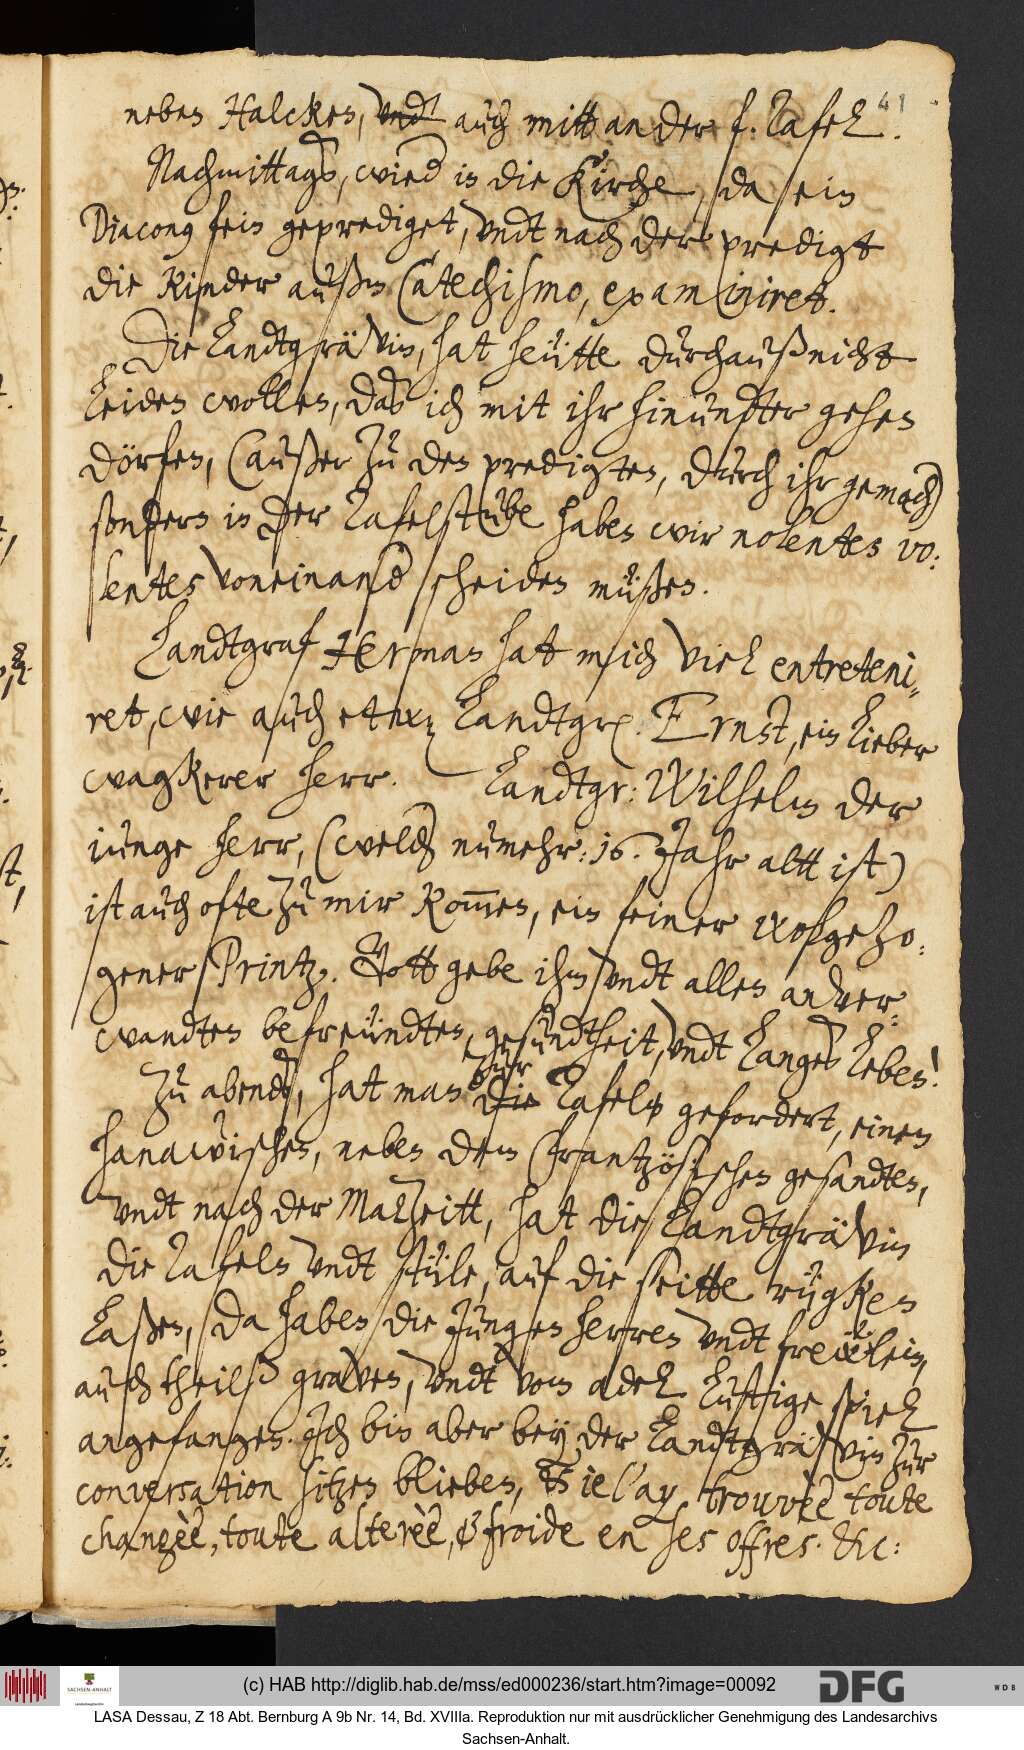 41
neben Halcken, vndt auch mitt an der f. Tafel.
Nachmittags, wied in die Kirche, da sein
Diacong fein geprediget, vndt nach der predigt
die Kinder außm Catechismo, examiniret.
Die Landtgrävin, hat heütte durchauß nicht
leiden wollen, das ich mit ihr hinundter gehen
dörfen, (außer zu den predigten, durch ihr gemach)
sondern in der Tafelstube haben wir nolentes vo:
lentes voneinand scheiden müßen.
Landtgraf Herman hat mich viel entreteni„
ret, wie auch Landtgr. Ernst, ein lieber
wagkerer herr. Landtgr: Wilhelm der
iunge herr, (welch numehr: 16. Jahr altt ist)
ist auch ofte zu mir kommen, ein feiner wolgezo:
gener Printz. Gott gebe ihm vndt allen anver:
wandten befreündten, gesundtheit, vndt langes leben!
Zu abends, hat man die zur Tafeln gefordert, einen
hanawischen, neben dem frantzösischen gesandten,
vndt nach der Malzeitt, hat die Landtgrävin
die Tafeln vndt stüle, auf die seitte rügken
laßen, da haben die Jungen herren vndt freẅlein,
auch theilß graven, vndt vom adel lustige spiel
angefangen. Ich bin aber bey der Landtgrävin zur
conversation sitzen blieben, & ie l'ay trouvèe toute
changèe, toute alterèe, & froide en ses offres. &c:
(c) HAB http://diglib.hab.de/mss/ed000236/start.htm?image=00092
SACHSEN-ANHALT
DFG
WDB
LASA Dessau, Z 18 Abt. Bernburg A 9b Nr. 14, Bd. XVIIIa. Reproduktion nur mit ausdrücklicher Genehmigung des Landesarchivs
Sachsen-Anhalt.